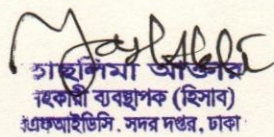 তাছলিমা আক্তার
সহকারী ব্যবস্থাপক (হিসাব)
বিএফআইডিসি. সদর দপ্তর, ঢাকা